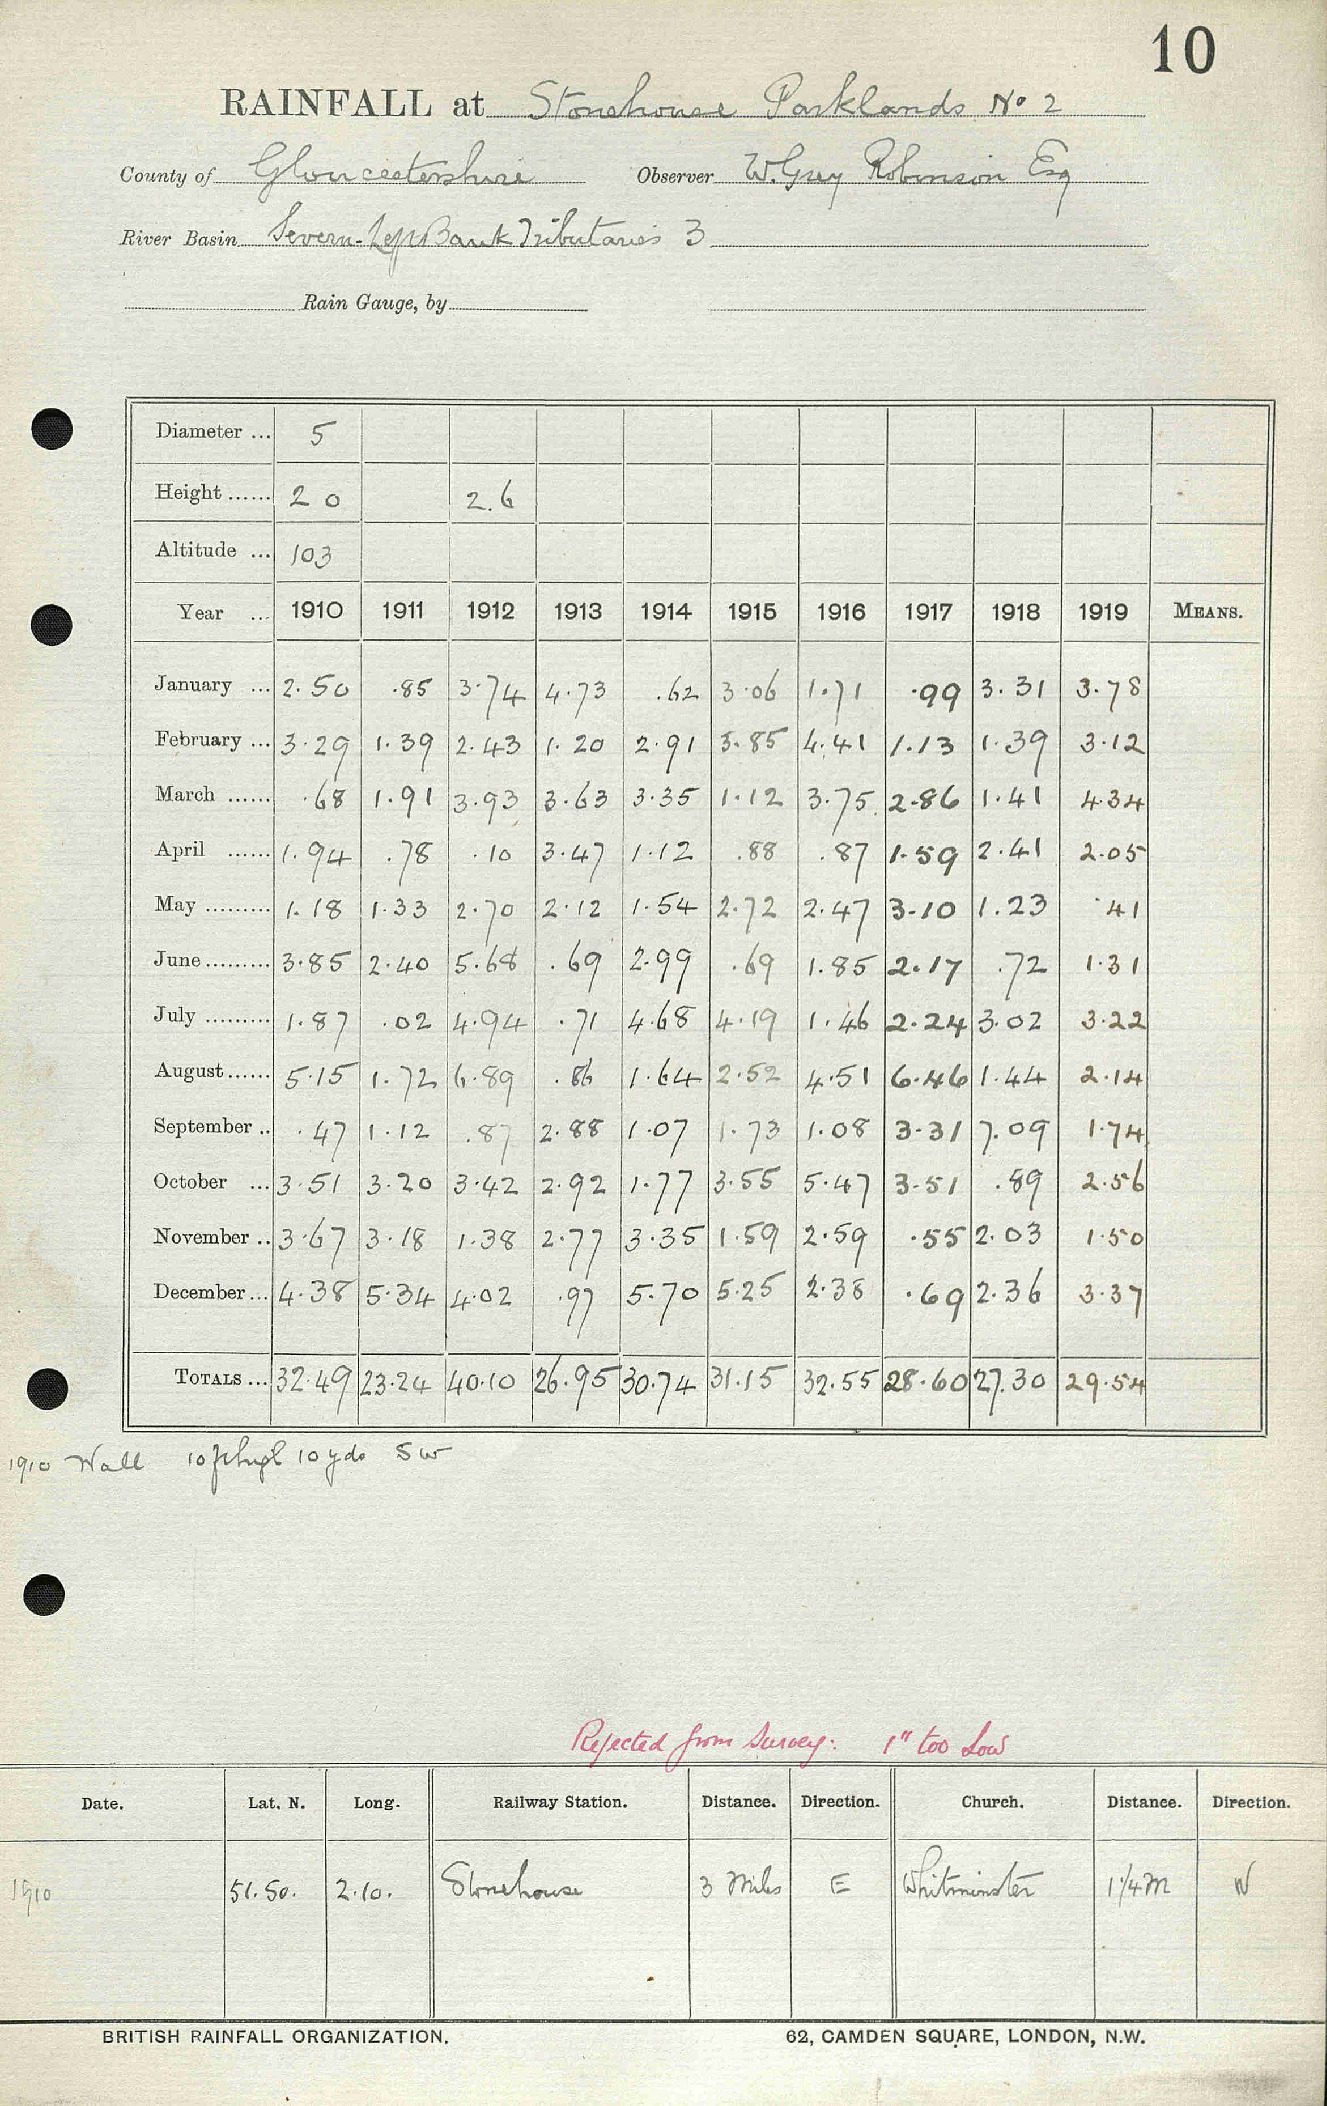 10
RAINFALL at Stonehouse Parklands No 2
County of Gloucestershire Observer W. Grey Robinson Esq
River Basin Severn-Left Bank Tributaries 3
Rain Gauge, by
Diameter ... 5
Height ...... 2 0 2.6
Altitude ... 103
Year ... 1910 1911 1912 1913 1914 1915 1916 1917 1918 1919 MEANS.
January ... 2.50 .85 3.74 4.73 .62 3.06 1.71 .99 3.31 3.78
February ... 3.29 1.39 2.43 1.20 2.91 3.85 4.41 1.13 1.39 3.12
March ...... .68 1.91 3.93 3.63 3.35 1.12 3.75 2.86 1.41 4.34
April ...... 1.94 .78 .10 3.47 1.12 .88 .87 1.59 2.41 2.05
May ......... 1.18 1.33 2.70 2.12 1.54 2.72 2.47 3.10 1.23 .41
June ......... 3.85 2.40 5.68 .69 2.99 .69 1.85 2.17 .72 1.31
July ......... 1.87 .02 4.94 .71 4.68 4.19 1.46 2.24 3.02 3.22
August ...... 5.15 1.72 6.89 .86 1.64 2.52 4.51 6.46 1.44 2.14
September .. .47 1.12 .87 2.88 1.07 1.73 1.08 3.31 7.09 1.74
October ... 3.51 3.20 3.42 2.92 1.77 3.55 5.47 3.51 .89 2.56
November .. 3.67 3.18 1.38 2.77 3.35 1.59 2.59 .55 2.03 1.50
December ... 4.38 5.34 4.02 .97 5.70 5.25 2.38 .69 2.36 3.37
TOTALS ... 32.49 23.24 40.10 26.95 30.74 31.15 32.55 28.60 27.30 29.54
1910 Wall 10 ft high 10 yds SW
Rejected from Survey: 1" too low
Date. Lat. N. Long. Railway Station. Distance. Direction. Church. Distance. Direction.
1910 51.50. 2.10. Stonehouse 3 Miles E Whitminster 1 1/4 M W
BRITISH RAINFALL ORGANIZATION. 62, CAMDEN SQUARE, LONDON, N.W.